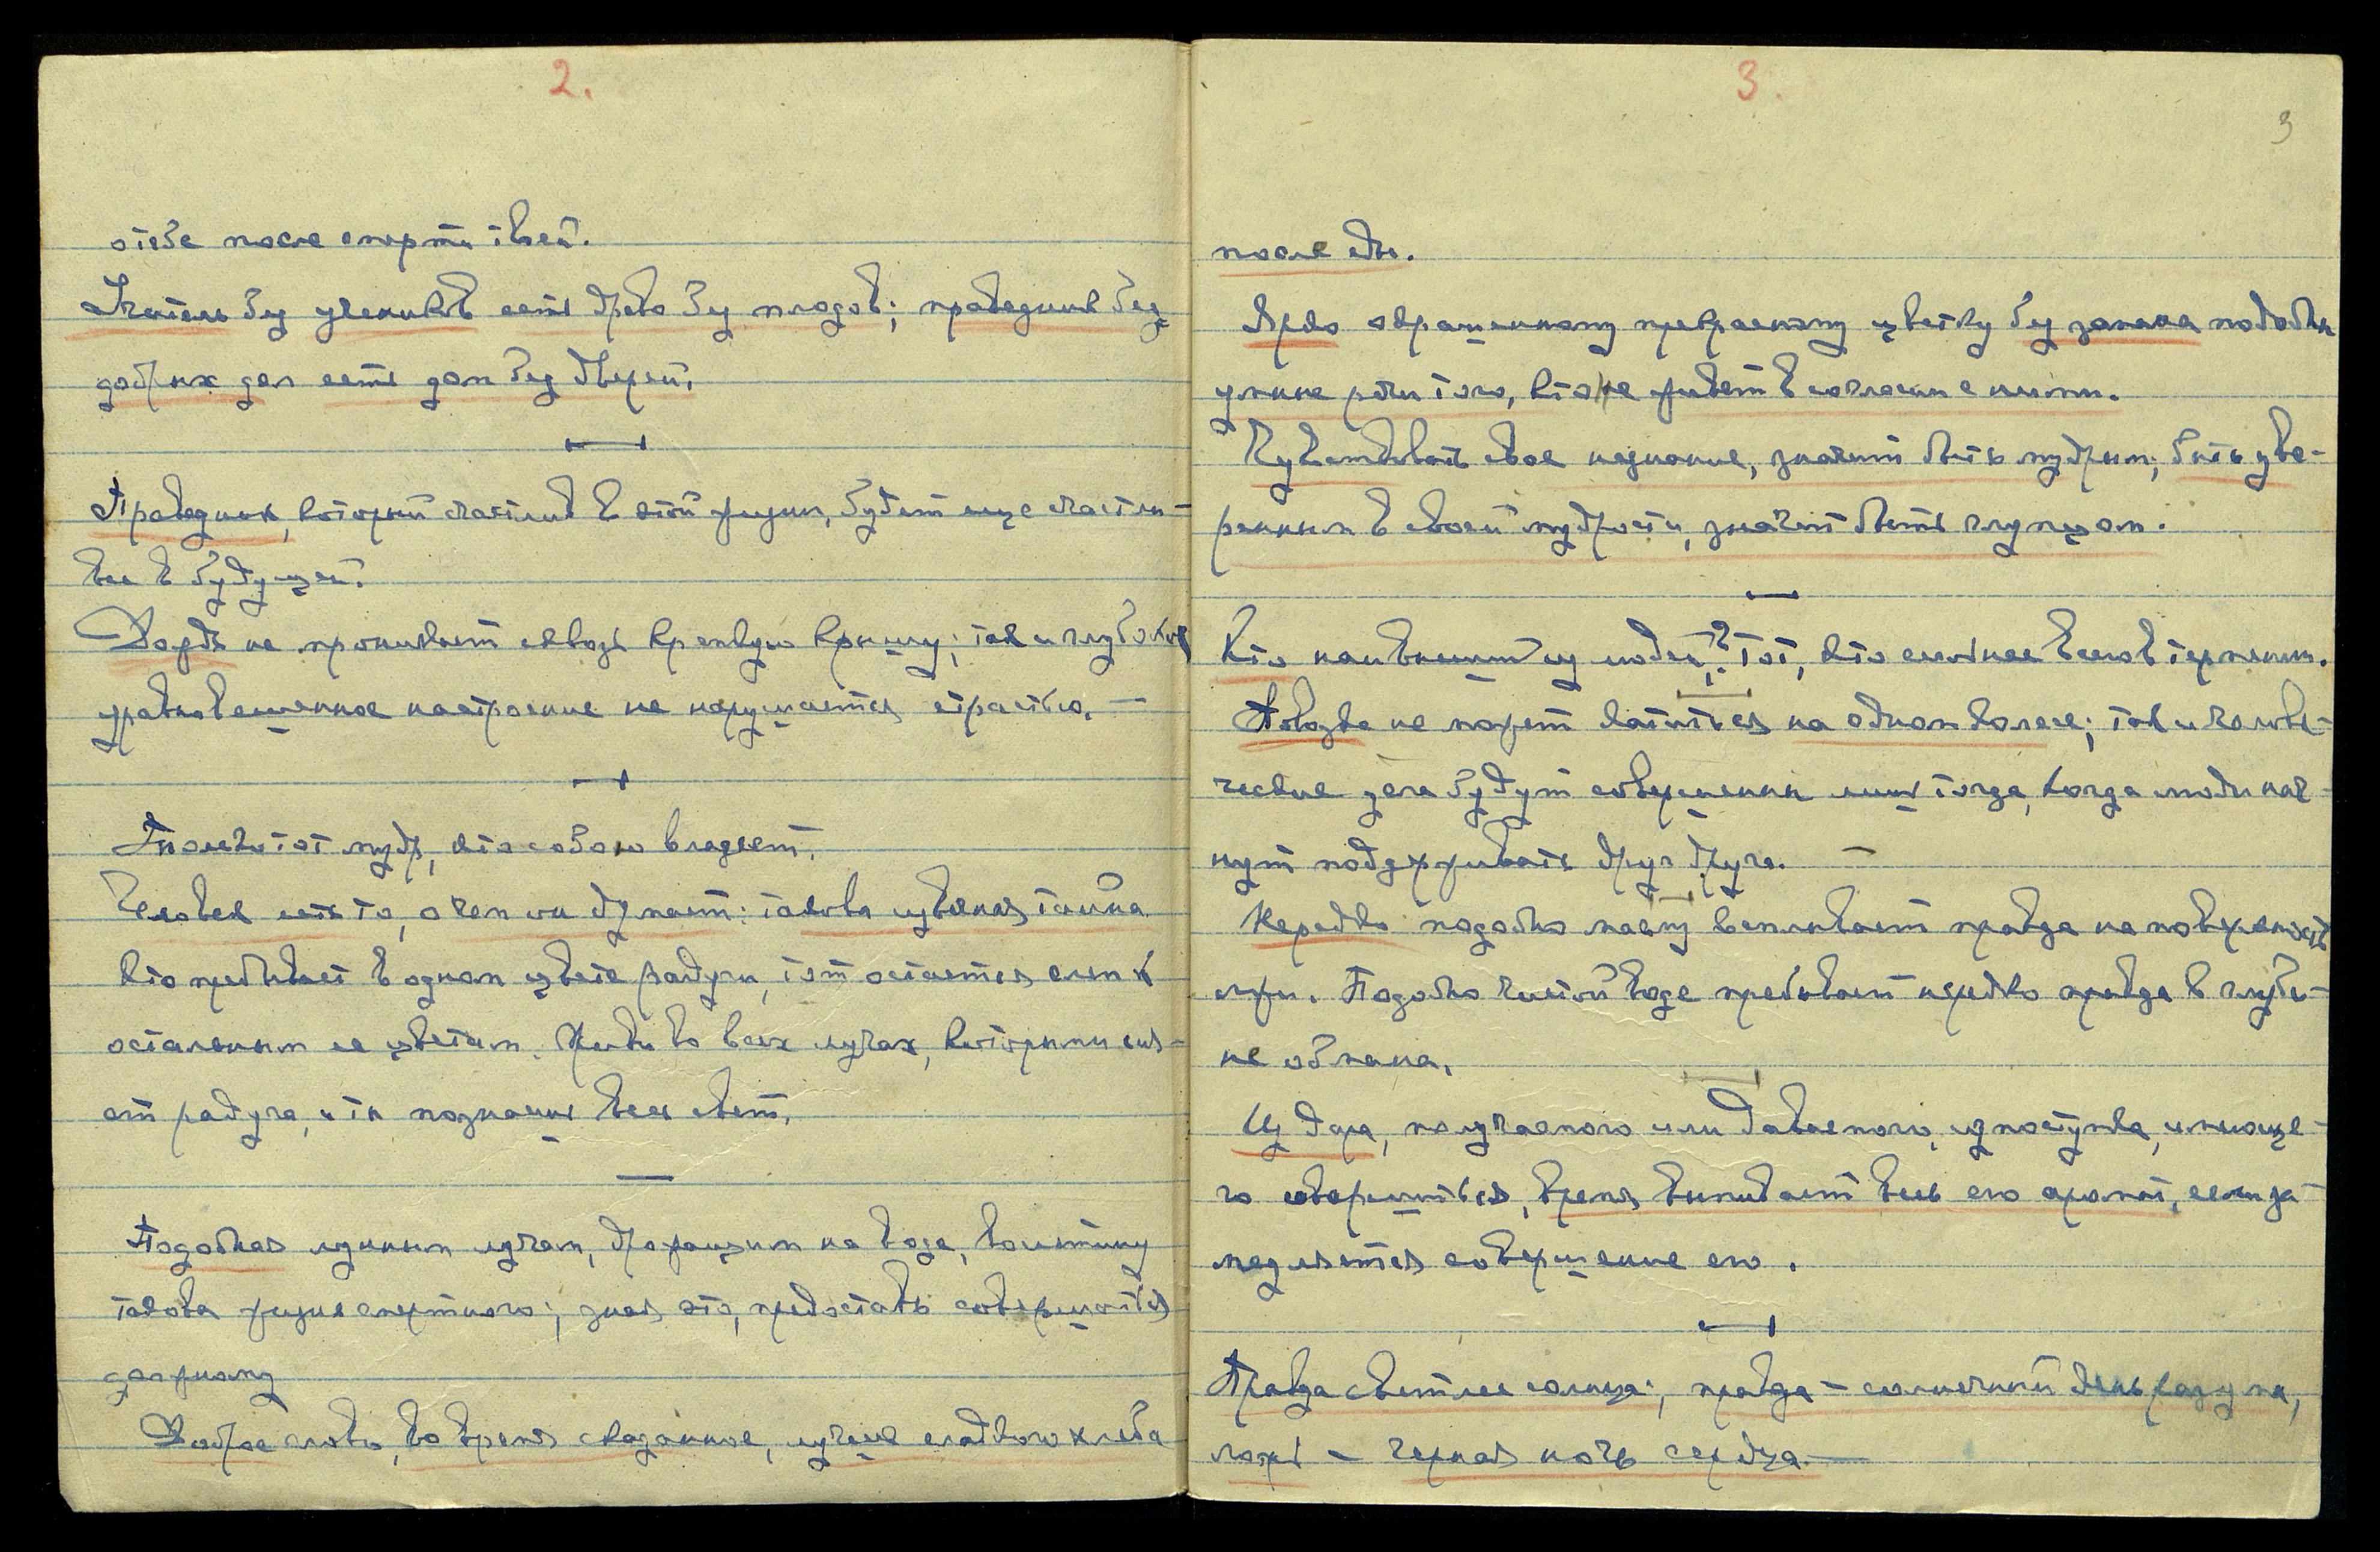 2.
о тебе после смерти твоей.
Учитель без учеников есть древо без плодов; праведник без
добрых дел есть дом без дверей.
Праведник, который счастлив в этой жизни, будет еще счастли-
вее в будущей.
Дождь не проникает сквозь крепкую крышу; так и глубокое
уравновешенное настроение не нарушается страстью. —
Только тот мудр, кто собою владеет.
Человек есть то, о чем он думает: такова извечная тайна
Кто пребывает в одном цвете радуги, тот остается слеп к
остальным ее цветам. Живи во всех лучах, которыми сия-
ет радуга, и ты познаешь весь свет.
Подобная лунным лучам, дрожащим на воде, воистину
такова жизнь смертного; зная это, предоставь совершаться
должному
Доброе слово, во время сказанное, лучше сладкого хлеба
3.
3
после еды.
Ярко окрашенному прекрасному цветку без запаха подобны
умные речи того, кто не живет в согласии с ними.
Чувствовать свое незнание, значит быть мудрым; быть уве-
ренным в своей мудрости, значит быть глупцом.
Кто наивысший из людей? Тот, кто сильнее всего в терпении.
Повозка не может катиться на одном колесе; так и челове-
ческие дела будут совершенны лишь тогда, когда люди нач-
нут поддерживать друг друга. —
Нередко подобно маслу всплывает правда на поверхность
лжи. Подобно чистой воде пребывает нередко правда в глуби-
не обмана.
Из дара, получаемого или даваемого, из поступка, имеюще-
го совершиться, время выпивает весь его аромат, если за-
медляется совершение его.
Правда светлее солнца; правда — солнечный день разума,
ложь — черная ночь сердца. —